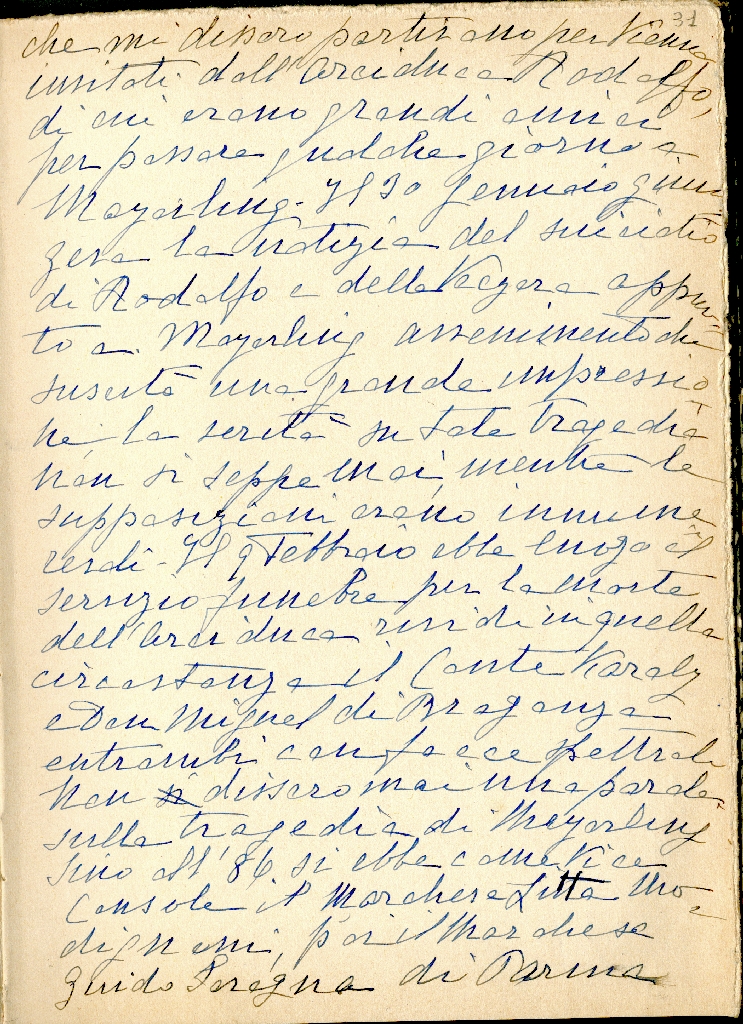 31
che mi dissero partivano per Vienna
invitati dall'Arciduca Rodolfo,
di cui erano grandi amici
per passare qualche giorno a
Mayerling. Il 30 Gennaio giun
geva la notizia del suicidio
di Rodolfo e della Veczera appun-
to a Mayerling avvenimento che
suscitò una grande impressio
ne. la verità su tale tragedia
non si seppe mai, mentre le
supposizioni erano innume
revoli. Il 9 Febbraio ebbe luogo il
servizio funebre per la morte
dell'Arciduca rividi in quella
circostanza il Conte Karoly
e Don Miguel di Braganza
entrambi con facce spettrali
Non si dissero mai una parola
sulla tragedia di Meyerling
Sino all'86 si ebbe come Vice
Console il Marchese Litta Mo-
dignani, poi il Marchese
Guido Soragna di Parma